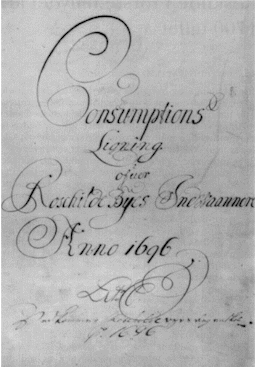 Consumptions
Ligning
ofuer
Roschilde Byes Indvaanere
Anno 1696
1696